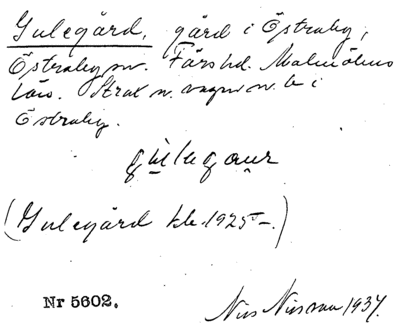 Gulegård, gård i Östraby,
Östraby sn. Färs hd. Malmöhus
län. Strax n. vägen n. le i
Östraby.
gu̱legau̱r
(Gulegård kbr. 1925–.)
Nr 5602.
Nils Nilsson 1937.